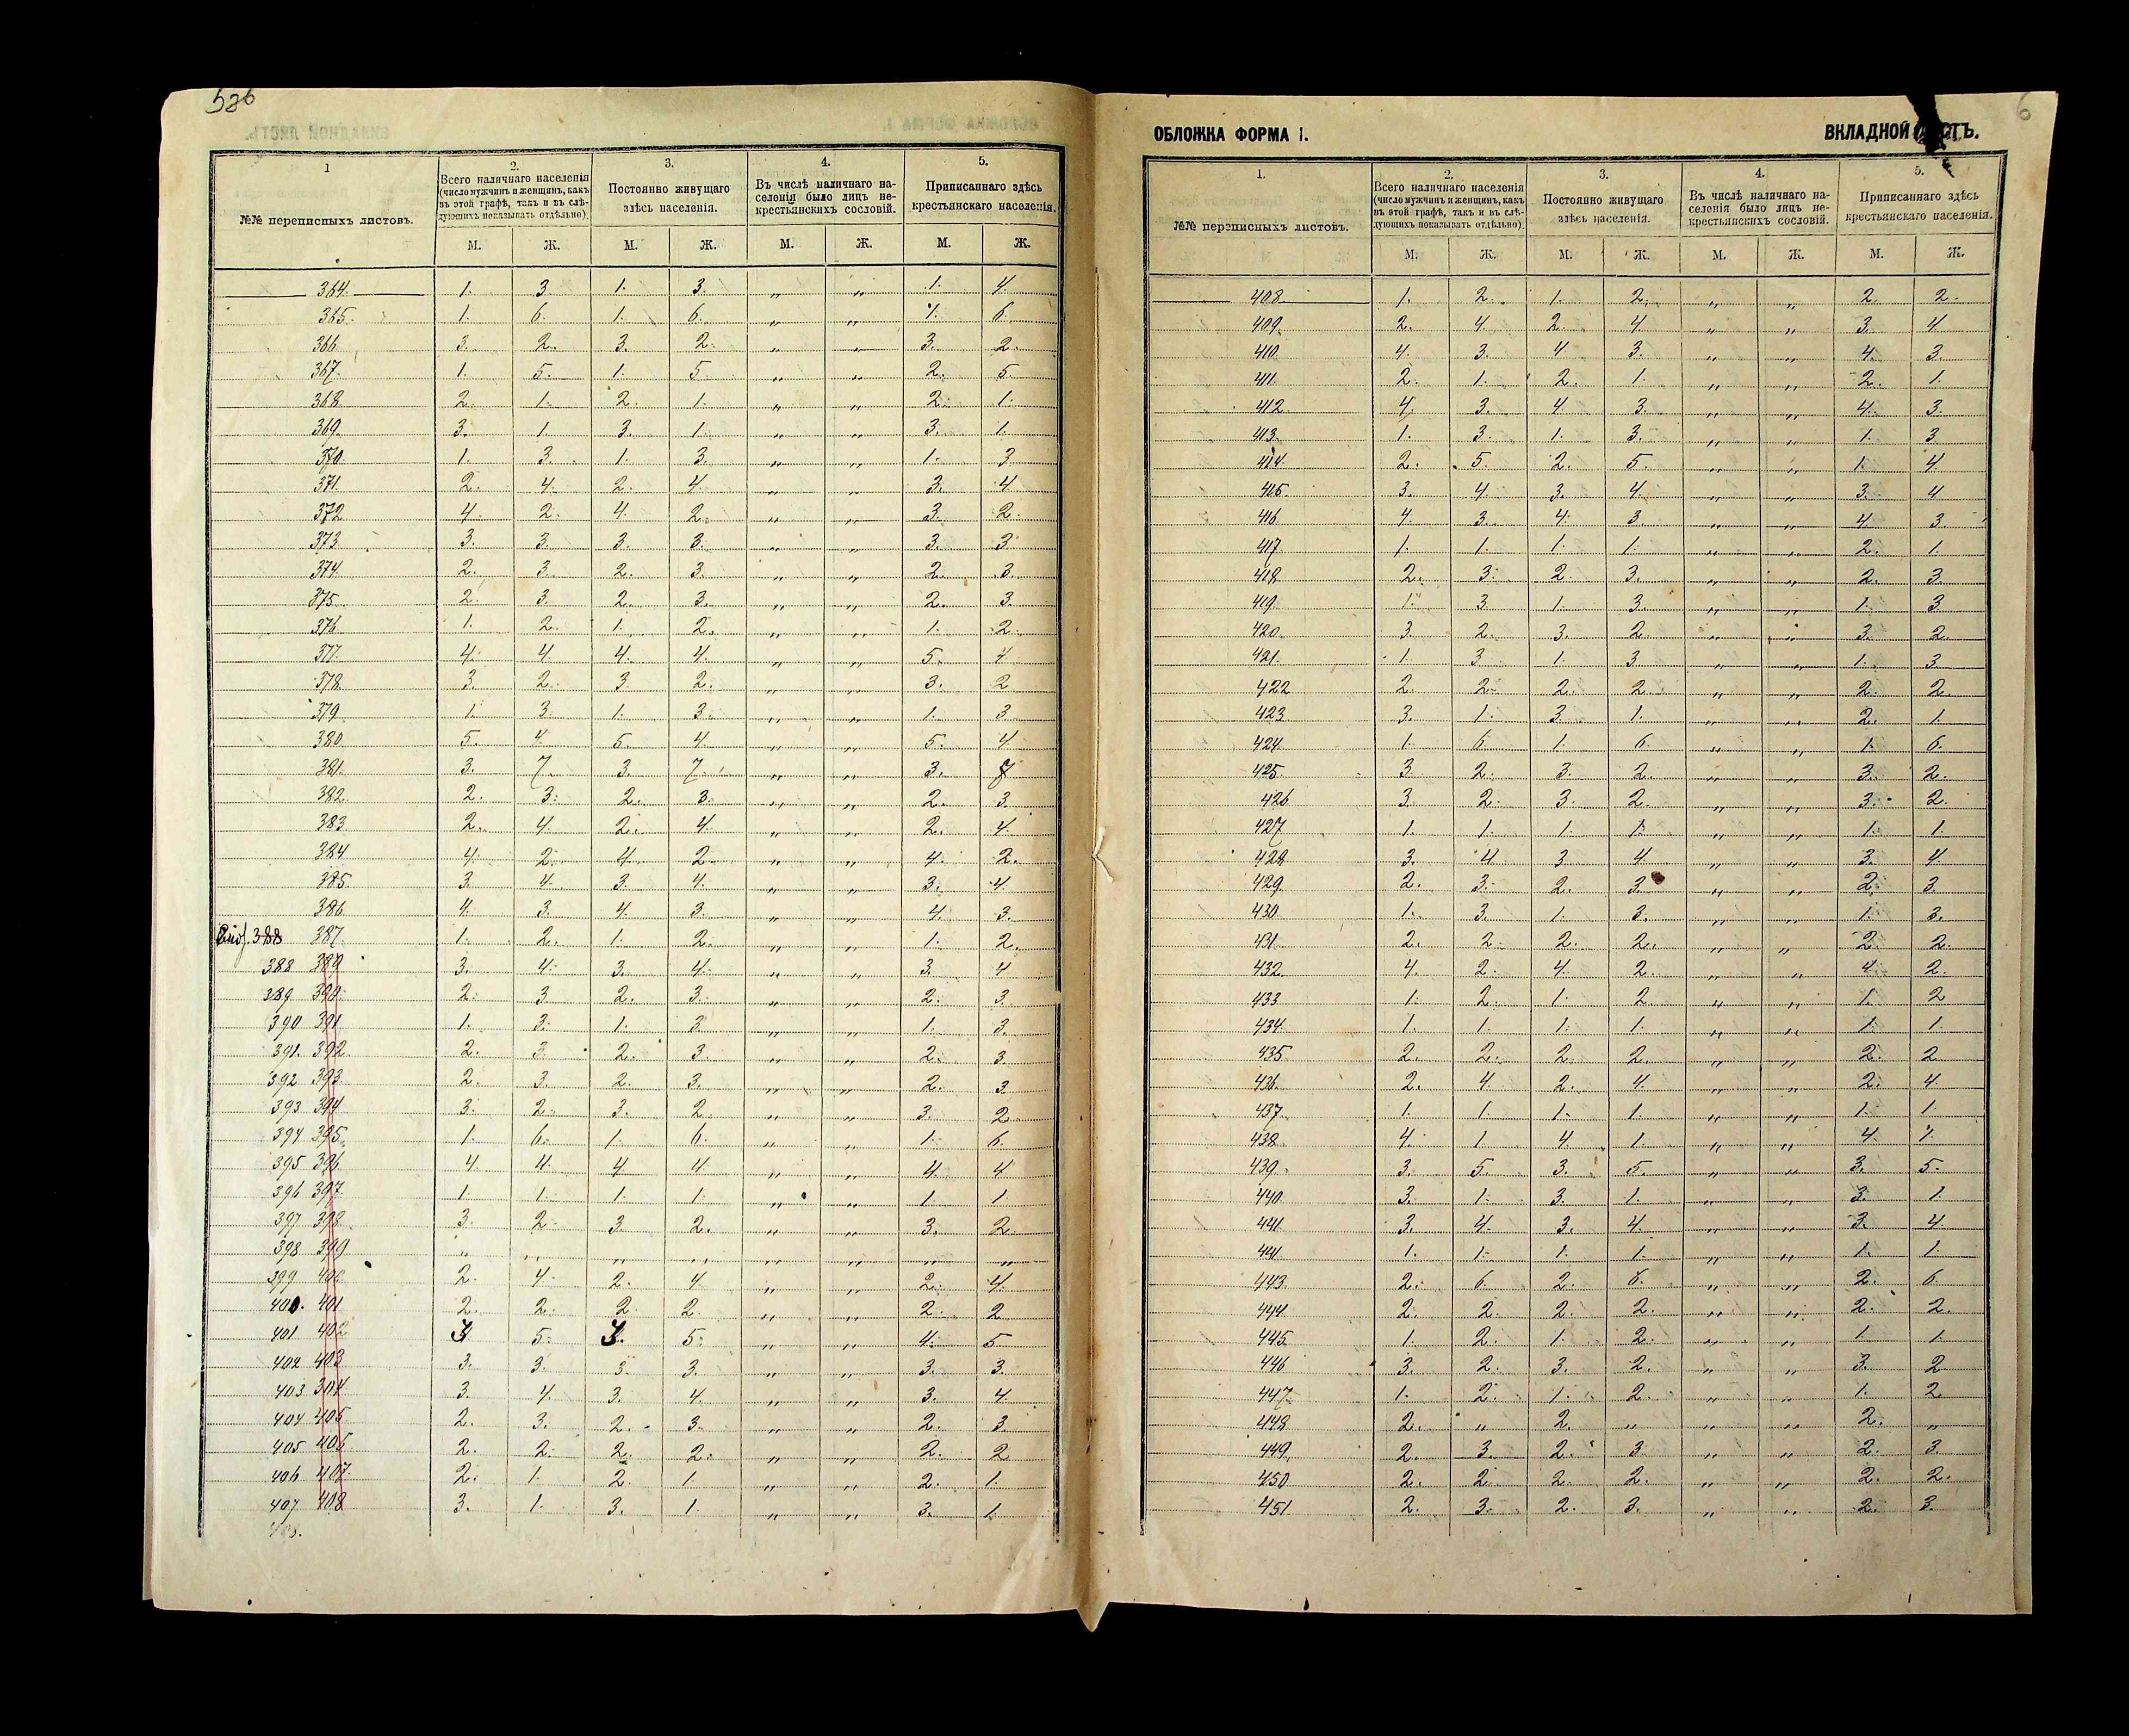 586
1
2.
3.
4.
5.
№№ переписныхъ листовъ.
Всего наличнаго населенія (число мужчинъ и женщинъ, какъ въ этой графѣ, такъ и въ слѣдующихъ показывать отдѣльно).
Постоянно живущаго здѣсь населенія.
Въ числѣ наличнаго населенія было лицъ некрестьянскихъ сословій.
Приписаннаго здѣсь крестьянскаго населенія.
М. Ж. М. Ж. М. Ж. М. Ж.
364. 1. 3 1. 3. „ „ 1. 4
365. 1. 6. 1. 6. „ „ 1. 6.
366 3. 2. 3. 2. „ „ 3. 2.
367. 1. 5. 1. 5 „ „ 2. 5.
368 2. 1. 2. 1. „ „ 2. 1.
369. 3. 1. 3. 1. „ „ 3. 1.
370. 1. 3. 1. 3. „ „ 1. 3
371. 2. 4. 2. 4. „ „ 3. 4
372 4. 2. 4. 2. „ „ 3. 2.
373. 3. 3. 3. 3. „ „ 3. 3.
374. 2. 3. 2. 3. „ „ 2. 3.
375. 2. 3. 2. 3. „ „ 2. 3.
376 1. 2. 1. 2. „ „ 1. 2.
377. 4. 4. 4. 4. „ „ 5. 4
378. 3. 2. 3 2. „ „ 3. 2
379. 1. 3. 1. 3. „ „ 1. 3
380. 5. 4. 5. 4. „ „ 5. 4.
381. 3. 7. 3. 7. „ „ 3. 7
382. 2. 3. 2. 3. „ „ 2. 3.
383 2. 4. 2. 4. „ „ 2. 4.
384 4. 2. 4. 2. „ „ 4. 2.
385. 3. 4. 3. 4. „ „ 3. 4.
386. 4. 3. 4. 3. „ „ 4. 3.
388 387. 1. 2. 1. 2. „ „ 1. 2.
388 389 3. 4. 3. 4. „ „ 3. 4
389 390. 2. 3 2. 3. „ „ 2. 3
390 391 1. 3. 1. 3 „ „ 1. 3.
391. 392. 2. 3. 2. 3. „ „ 2. 3.
392 393. 2. 3. 2. 3. „ „ 2. 3
393 394 3. 2. 3. 2. „ „ 3. 2
394 395. 1. 6. 1. 6. „ „ 1. 6.
395 396 4 4. 4 4. „ „ 4. 4
396 397. 1. 1. 1. 1. „ „ 1. 1.
397 398. 3. 2. 3. 2. „ „ 3. 2.
398 399 „ „ „ „ „ „ „ „
399 400 2. 4. 2. 4 „ „ 2. 4.
400. 401 2. 2. 2. 2. „ „ 2. 2
401 402 3 5. 3. 5. „ „ 4. 5
402 403 3. 3. 3. 3. „ „ 3. 3.
403 304 3. 4. 3. 4. „ „ 3. 4
404 405 2. 3. 2. 3. „ „ 2. 3.
405 406 2. 2. 2. 2. „ „ 2. 2
406 407. 2. 1. 2. 1 „ „ 2. 1.
407 408 3. 1. 3. 1. „ „ 3. 1.
408.
6
ОБЛОЖКА ФОРМА I.
ВКЛАДНОЙ
1.
2.
3.
4.
5.
№№ переписныхъ листовъ.
Всего наличнаго населенія (число мужчинъ и женщинъ, какъ въ этой графѣ, такъ и въ слѣдующихъ показывать отдѣльно).
Постоянно живущаго здѣсь населенія.
Въ числѣ наличнаго населенія было лицъ некрестьянскихъ сословій.
Приписаннаго здѣсь крестьянскаго населенія.
М. Ж. М. Ж. М. Ж. М. Ж.
408 1. 2. 1. 2. „ „ 2. 2.
409. 2. 4. 2. 4. „ „ 3. 4
410. 4. 3. 4 3. „ „ 4. 3.
411. 2. 1. 2. 1. „ „ 2. 1.
412. 4. 3. 4. 3. „ „ 4. 3.
413. 1. 3. 1. 3. „ „ 1. 3
414. 2. 5. 2. 5. „ „ 1. 4
415. 3. 4. 3. 4. „ „ 3. 4
416 4. 3. 4. 3. „ „ 4. 3.
417 1. 1. 1. 1. „ „ 2. 1.
418 2. 3. 2. 3. „ „ 2. 3.
419. 1. 3. 1. 3. „ „ 1. 3
420. 3. 2. 3. 2. „ „ 3. 2.
421. 1. 3 1. 3 „ „ 1. 3
422 2. 2. 2. 2. „ „ 2. 2.
423. 3. 1. 3. 1. „ „ 2. 1.
424. 1. 6. 1. 6. „ „ 1. 6.
425. 3. 2. 3. 2. „ „ 3. 2.
426 3. 2. 3. 2. „ „ 3. 2.
427 1. 1. 1. 1. „ „ 1. 1.
428 3. 4 3. 4. „ „ 3. 4.
429. 2. 3. 2. 3. „ „ 2. 3.
430. 1. 3. 1. 3. „ „ 1. 3.
431. 2. 2. 2. 2. „ „ 2. 2.
432. 4. 2. 4. 2. „ „ 4. 2.
433 1. 2. 1. 2. „ „ 1. 2
434. 1. 1. 1. 1. „ „ 1. 1.
435 2. 2. 2. 2. „ „ 2. 2
436. 2. 4. 2. 4. „ „ 2. 4.
437. 1. 1. 1. 1. „ „ 1. 1.
438. 4. 1. 4. 1. „ „ 4. 1.
439. 3. 5. 3. 5. „ „ 3. 5.
440. 3. 1. 3. 1. „ „ 3. 1.
441. 3. 4. 3. 4. „ „ 3. 4.
441 1. 1. 1. 1. „ „ 1. 1.
443. 2. 6. 2. 6. „ „ 2. 6.
444. 2. 2. 2. 2. „ „ 2. 2.
445. 1. 2. 1. 2. „ „ 1. 1
446 3. 2. 3. 2. „ „ 3. 2
447. 1. 2. 1. 2. „ „ 1. 2
448. 2. „ 2. „ „ „ 2. „
449. 2. 3. 2. 3. „ „ 2. 3.
450 2. 2. 2. 2. „ „ 2. 2.
451. 2. 3. 2. 3. „ „ 2. 3.